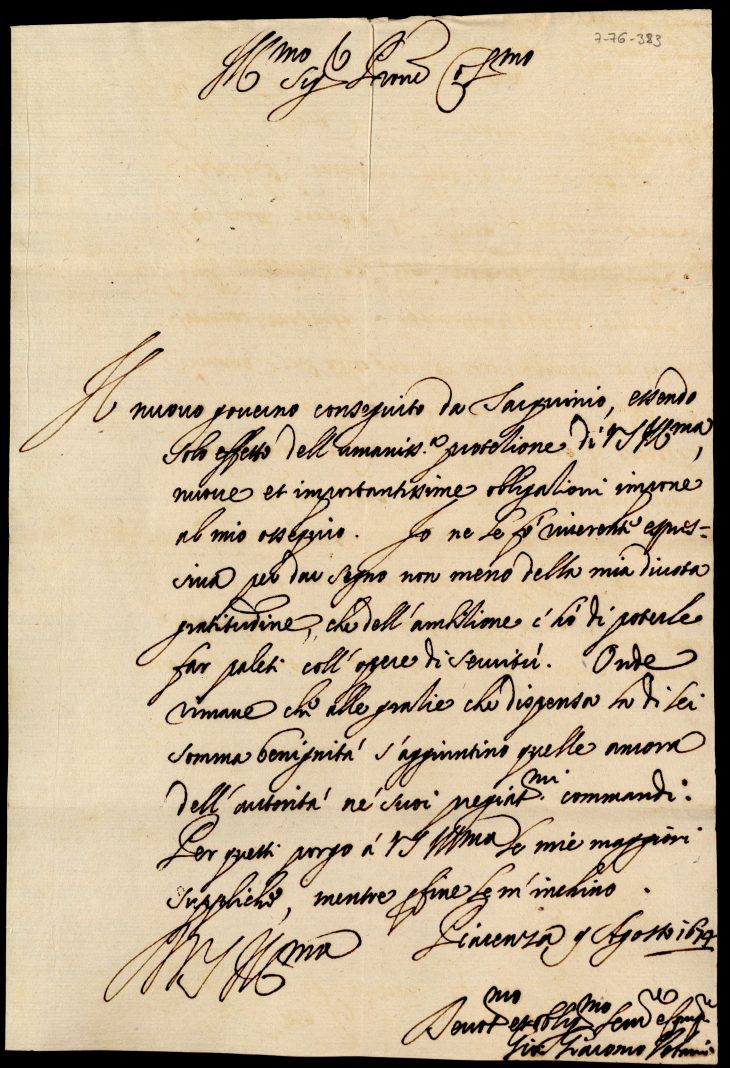 7-76-383
Ill.mo Sig.r Prone Col.mo
Il nuovo governo conseguito da Sarguinio, essendo
solo effetto dell'amaniss.a protetione di V S Ill.ma,
nuove et importantissime obligationi impone
al mio ossequio. Io ne le fò riverente espres=
siva per dar segno non meno della mia divota
gratitudine, che dell'ambitione c'hò di poterle
far palesi coll'opere di servitù. Onde
rimane che alle gratie che dispensa la di lei
somma benignità s'aggiuntino quelle ancora
dell'autorità ne' suoi pregiat.mi commandi:
Per questi porgo à V S Ill.ma le mie maggiori
suppliche, mentre p fine le m'inchino.
Di V S Ill.ma Piacenza 9 Agosto 1674
Devot.mo et oblig.mo Ser.re
Gio: Giacomo